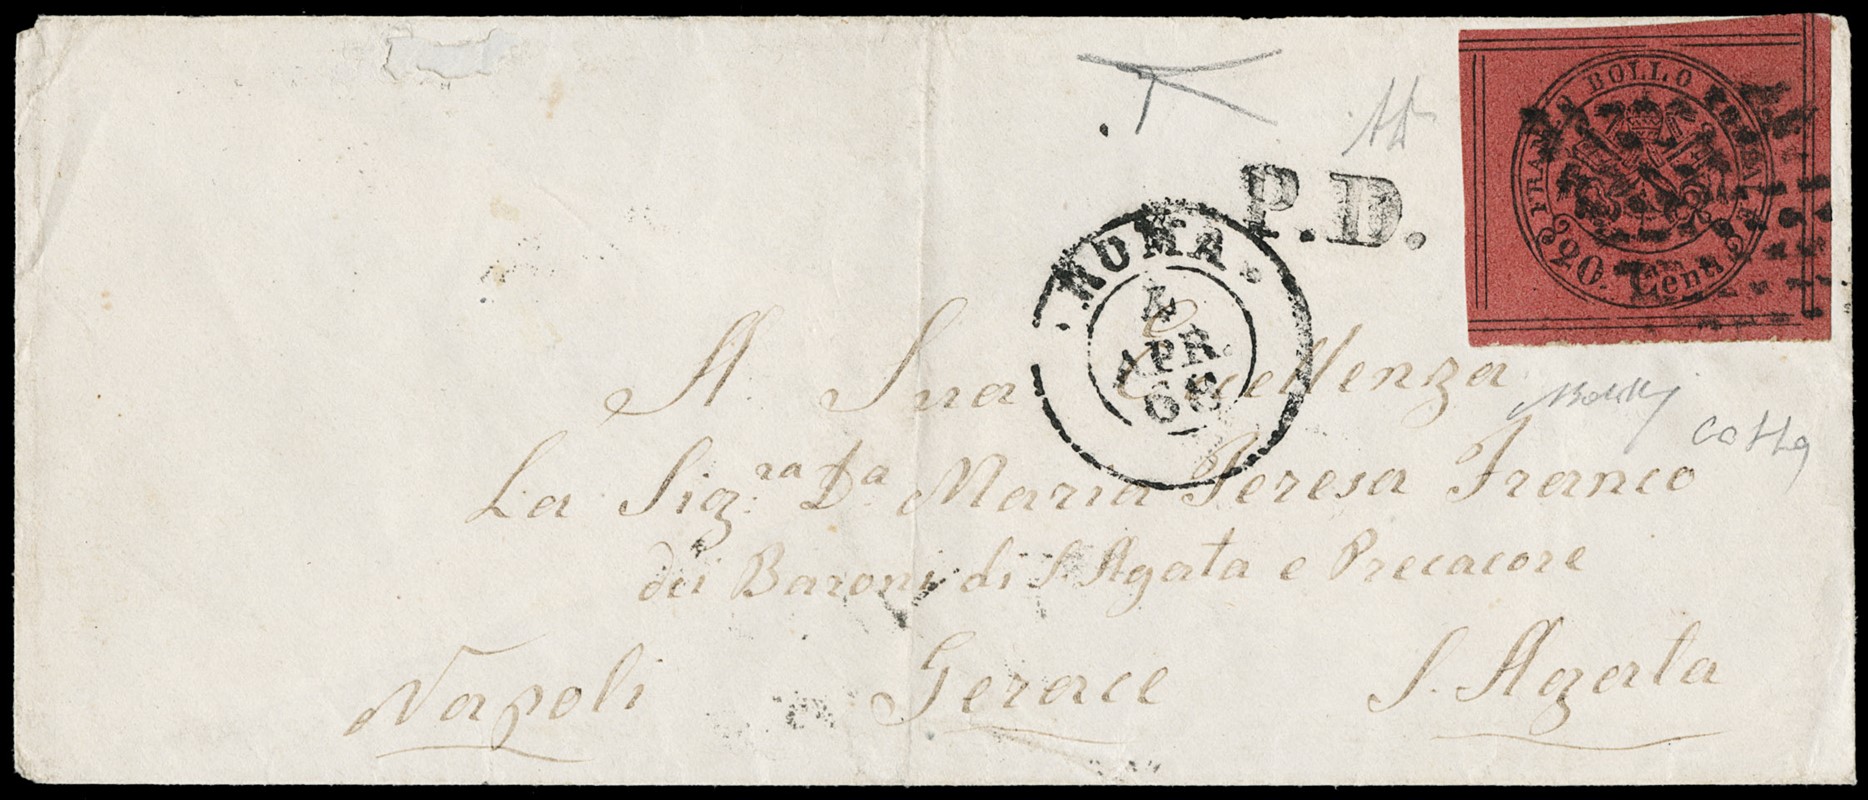 FRANCO BOLLO POSTALE
20. Cent.
P.D.
ROMA.
4
APR.
68
A. Sua Eccellenza
La Sig:ra Da. Maria Teresa Franco
dei Baroni di S. Agata e Precacore
Napoli Gerace S. Agata